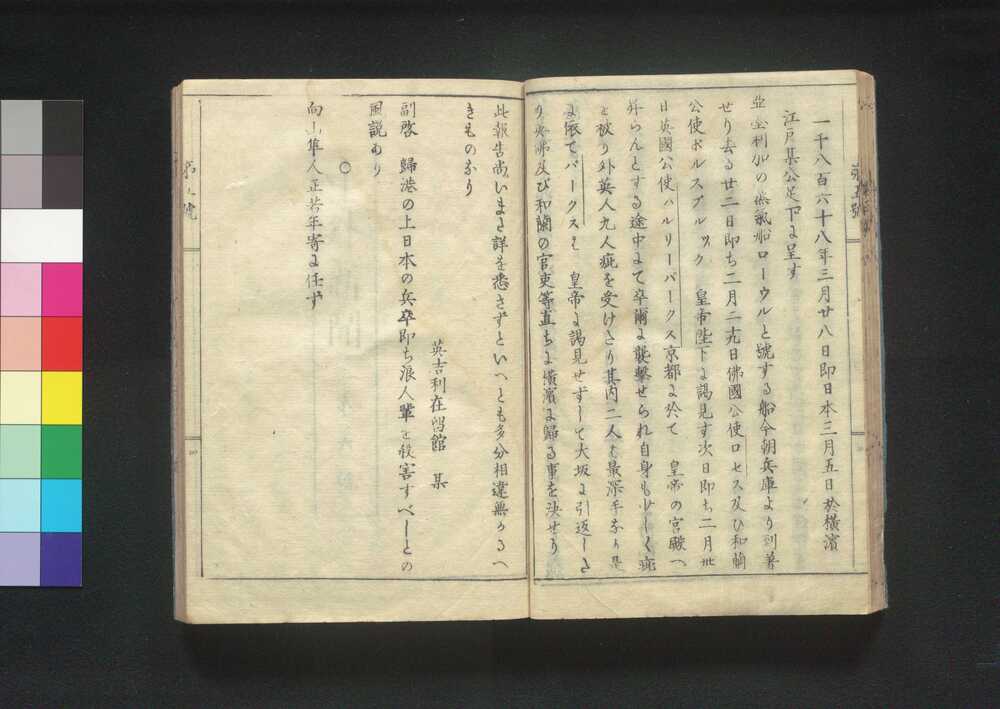 一千八百六十八年三月廿八日即日本三月五日於横濱
江戸某公足下に呈す
亞墨利加の蒸氣船ローウルと號する船今朝兵庫より到着
せり去る廿二日即ち二月二十九日佛國公使ロセス及ひ和蘭
公使ボルスブルック 皇帝陛下に謁見す次日即ち二月卅
日英國公使ハルリーパークス京都に於て 皇帝の宮殿へ
昇らんとする途中にて卒爾に襲撃せられ自身も少しく疵
を被り外英人九人疵を受けたり其内二人は最深手なり是
に依てパークスは 皇帝に謁見せずして大坂に引返した
り英佛及び和蘭の官吏等直ちに横濱に歸る事を決せり
第五號
此報告尚いまだ詳を悉さずといへとも多分相違無かるへ
きものなり
英吉利在留館 某
副啓 歸港の上日本の兵卒即ち浪人輩を殺害すべしとの
風説あり
○
向山隼人正若年寄に任ず
第五號